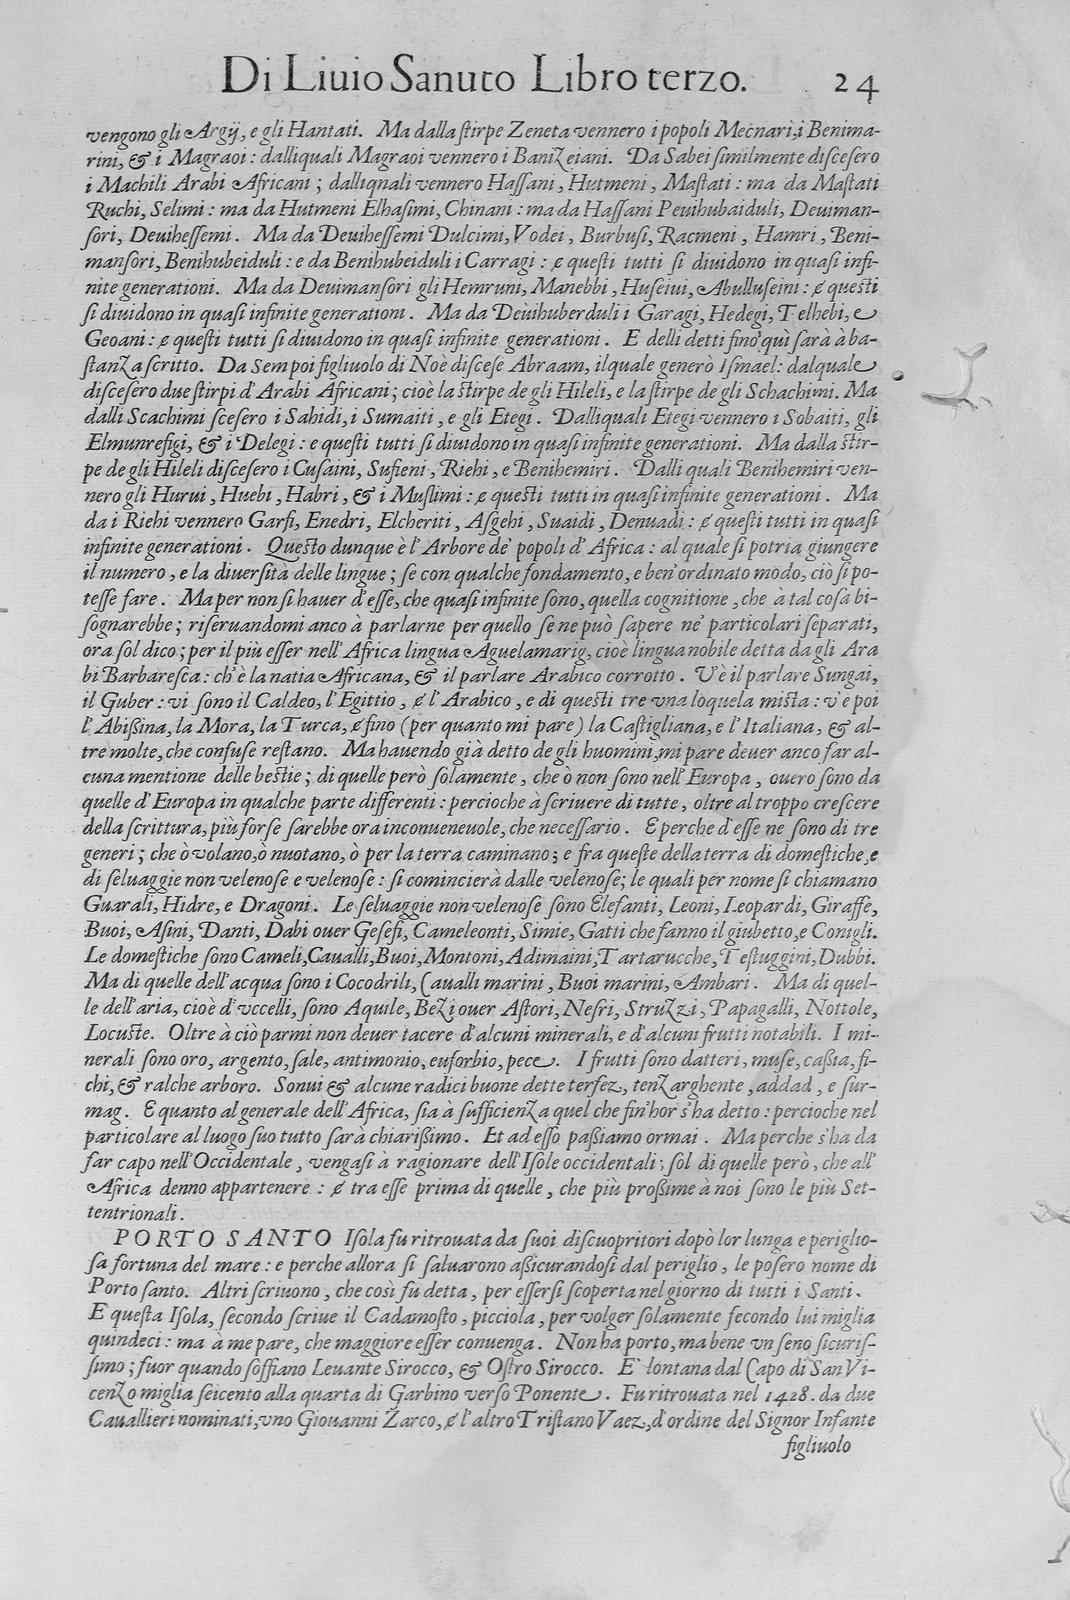 Di Liuio Sanuto Libro terzo. 24
vengono gli Argij, e gli Hantati. Ma dalla stirpe Zeneta vennero i popoli Mecnari, i Benima-
rini, & i Magraoi: dalli quali Magraoi vennero i Banizeiani. Da Sabei similmente discesero
i Machili Arabi Africani; dalli qnali vennero Hassani, Hutmeni, Mastati: ma da Mastati
Ruchi, Selimi: ma da Hutmeni Elhasimi, Chinani: ma da Hassani Peuihubaiduli, Deuiman-
sori, Deuihessemi. Ma da Deuihessemi Dulcimi, Vodei, Burbusi, Racmeni, Hamri, Beni-
mansori, Benihubeiduli: e da Benihubeiduli i Carragi: & questi tutti si diuidono in quasi infi-
nite generationi. Ma da Deuimansori gli Hemruni, Manebbi, Huseiui, Abulluseini: & questi
si diuidono in quasi infinite generationi. Ma da Deuihuberduli i Garagi, Hedegi, Telhebi, e
Geoani: & questi tutti si diuidono in quasi infinite generationi. E delli detti fino quì sarà à ba-
stanza scritto. Da Sem poi figliuolo di Noè discese Abraam, il quale generò Ismael: dal quale
discesero due stirpi d'Arabi Africani; cioè la stirpe de gli Hileli, e la stirpe de gli Schachimi. Ma
dalli Scachimi scesero i Sahidi, i Sumaiti, e gli Etegi. Dalli quali Etegi vennero i Sobaiti, gli
Elmunrefigi, & i Delegi: e questi tutti si diuidono in quasi infinite generationi. Ma dalla stir-
pe de gli Hileli discesero i Cusaini, Sufieni, Riehi, e Benihemiri. Dalli quali Benihemiri ven-
nero gli Hurui, Huebi, Habri, & i Muslimi: & questi tutti in quasi infinite generationi. Ma
da i Riehi vennero Garfi, Enedri, Elcheriti, Asgehi, Suaidi, Denuadi: & questi tutti in quasi
infinite generationi. Questo dunque è l'Arbore de' popoli d'Africa: al quale si potria giungere
il numero, e la diuersità delle lingue; se con qualche fondamento, e ben' ordinato modo, ciò si po-
tesse fare. Ma per non si hauer d'esse, che quasi infinite sono, quella cognitione, che à tal cosa bi-
sognarebbe; riseruandomi anco à parlarne per quello se ne può sapere ne' particolari separati,
ora sol dico; per il più esser nell'Africa lingua Aguelamarig, cioè lingua nobile detta da gli Ara
bi Barbaresca: ch'è la natia Africana, & il parlare Arabico corrotto. V'è il parlare Sungai,
il Guber: vi sono il Caldeo, l'Egittio, & l'Arabico, e di questi tre vna loquela mista: v'è poi
l'Abißina, la Mora, la Turca, & fino (per quanto mi pare) la Castigliana, e l'Italiana, & al-
tre molte, che confuse restano. Ma hauendo già detto de gli huomini, mi pare deuer anco far al-
cuna mentione delle bestie; di quelle però solamente, che ò non sono nell'Europa, ouero sono da
quelle d'Europa in qualche parte differenti: percioche à scriuere di tutte, oltre al troppo crescere
della scrittura, più forse sarebbe ora inconueneuole, che necessario. E perche d'esse ne sono di tre
generi; che ò volano, ò nuotano, ò per la terra caminano; e fra queste della terra di domestiche, e
di seluaggie non velenose e velenose: si comincierà dalle velenose; le quali per nome si chiamano
Guarali, Hidre, e Dragoni. Le seluaggie non velenose sono Elefanti, Leoni, Leopardi, Giraffe,
Buoi, Asini, Danti, Dabi ouer Gesefi, Cameleonti, Simie, Gatti che fanno il giubetto, e Conigli.
Le domestiche sono Cameli, Caualli, Buoi, Montoni, Adimaini, Tartarucche, Testuggini, Dubbi.
Ma di quelle dell'acqua sono i Cocodrili, Caualli marini, Buoi marini, Ambari. Ma di quel-
le dell'aria, cioè d'vccelli, sono Aquile, Bezi ouer Astori, Nesri, Struzzi, Papagalli, Nottole,
Locuste. Oltre à ciò parmi non deuer tacere d'alcuni minerali, e d'alcuni frutti notabili. I mi-
nerali sono oro, argento, sale, antimonio, euforbio, pece. I frutti sono datteri, muse, caßia, fi-
chi, & ralche arboro. Sonui & alcune radici buone dette terfez, tenzarghente, addad, e sur-
mag. E quanto al generale dell'Africa, sia à sufficienza quel che fin'hor s'ha detto: percioche nel
particolare al luogo suo tutto sarà chiarißimo. Et ad esso paßiamo ormai. Ma perche s'ha da
far capo nell'Occidentale, vengasi à ragionare dell'Isole occidentali; sol di quelle però, che all'
Africa denno appartenere: & tra esse prima di quelle, che più proßime à noi sono le più Set-
tentrionali.
PORTO SANTO Isola fu ritrouata da suoi discuopritori dopò lor lunga e periglio-
sa fortuna del mare: e perche allora si saluarono aßicurandosi dal periglio, le posero nome di
Porto santo. Altri scriuono, che così fù detta, per essersi scoperta nel giorno di tutti i Santi.
E questa Isola, secondo scriue il Cadamosto, picciola, per volger solamente secondo lui miglia
quindeci: ma à me pare, che maggiore esser conuenga. Non ha porto, ma bene vn seno sicuris-
simo; fuor quando soffiano Leuante Sirocco, & Ostro Sirocco. E' lontana dal Capo di San Vi-
cenzo miglia seicento alla quarta di Garbino verso Ponente. Fu ritrouata nel 1428. da due
Cauallieri nominati, vno Giouanni Zarco, & l'altro Tristano Vaez, d'ordine del Signor Infante
figliuolo